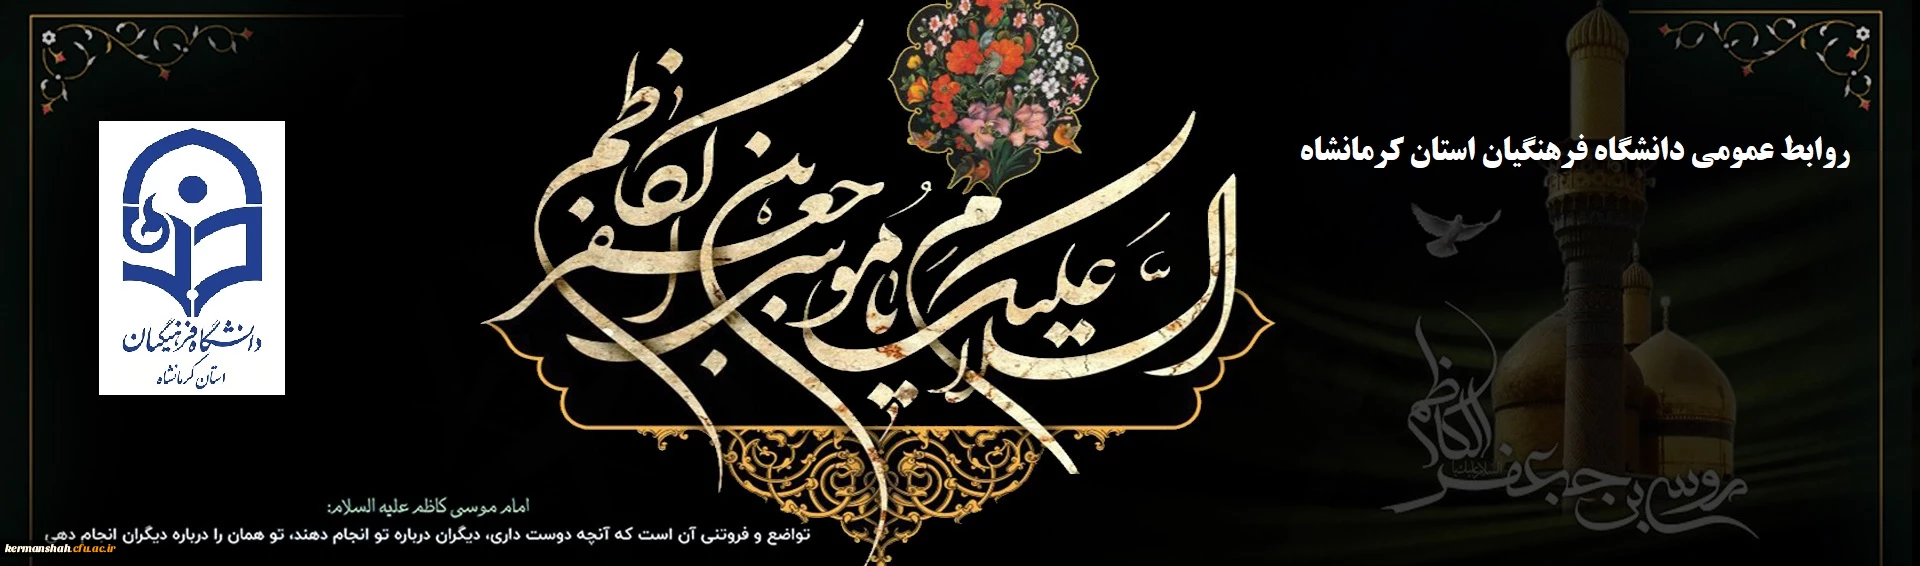 روابط عمومی دانشگاه فرهنگیان استان کرمانشاه
السلام علیک یا موسی بن جعفر الکاظم
دانشگاه فرهنگیان
استان کرمانشاه
موسی بن جعفر الکاظم
امام موسی کاظم علیه السلام:
تواضع و فروتنی آن است که آنچه دوست داری، دیگران درباره تو انجام دهند، تو همان را درباره دیگران انجام دهی
kermanshah.cfu.ac.ir